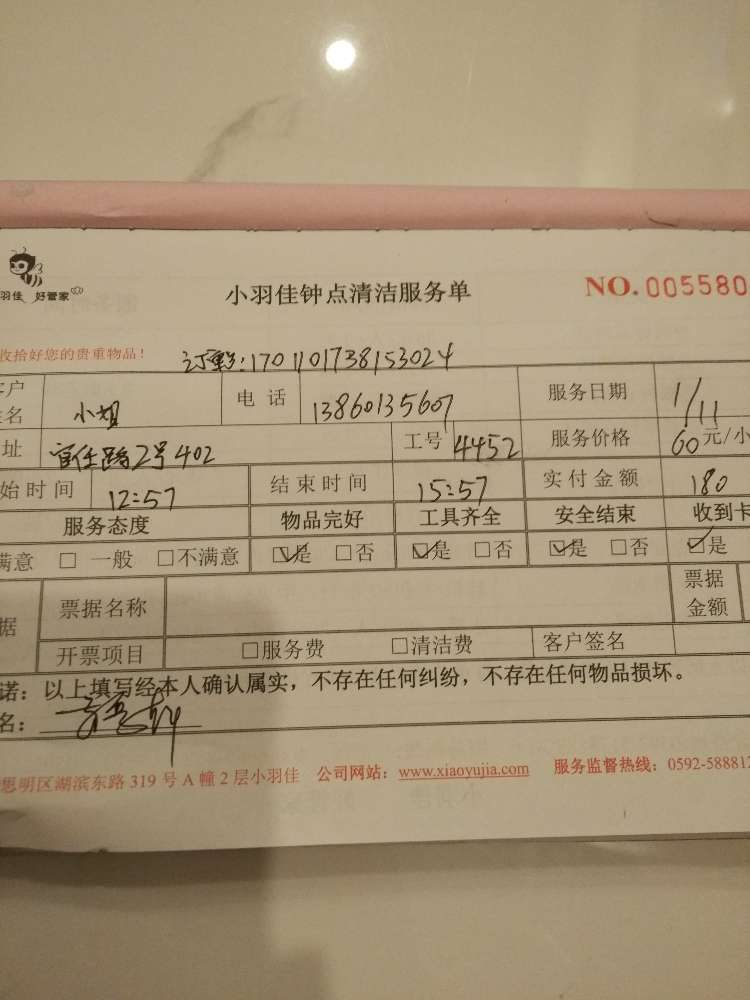 羽佳 好管家
小羽佳钟点清洁服务单
NO. 005580
收拾好您的贵重物品！
订单号:1701101738153024
户 名 小姐 电话 13860135607 服务日期 1/11
址 官任路2号402 工号 4452 服务价格 60元/小
始时间 12:57 结束时间 15:57 实付金额 180
服务态度 物品完好 工具齐全 安全结束 收到卡
满意 □ 一般 □不满意 ☑是 □否 ☑是 □否 ☑是 □否 ☑是
据 票据名称 票据金额
开票项目 □服务费 □清洁费 客户签名
诺：以上填写经本人确认属实，不存在任何纠纷，不存在任何物品损坏。
名：
思明区湖滨东路 319 号 A 幢 2 层小羽佳 公司网站：www.xiaoyujia.com 服务监督热线：0592-588812